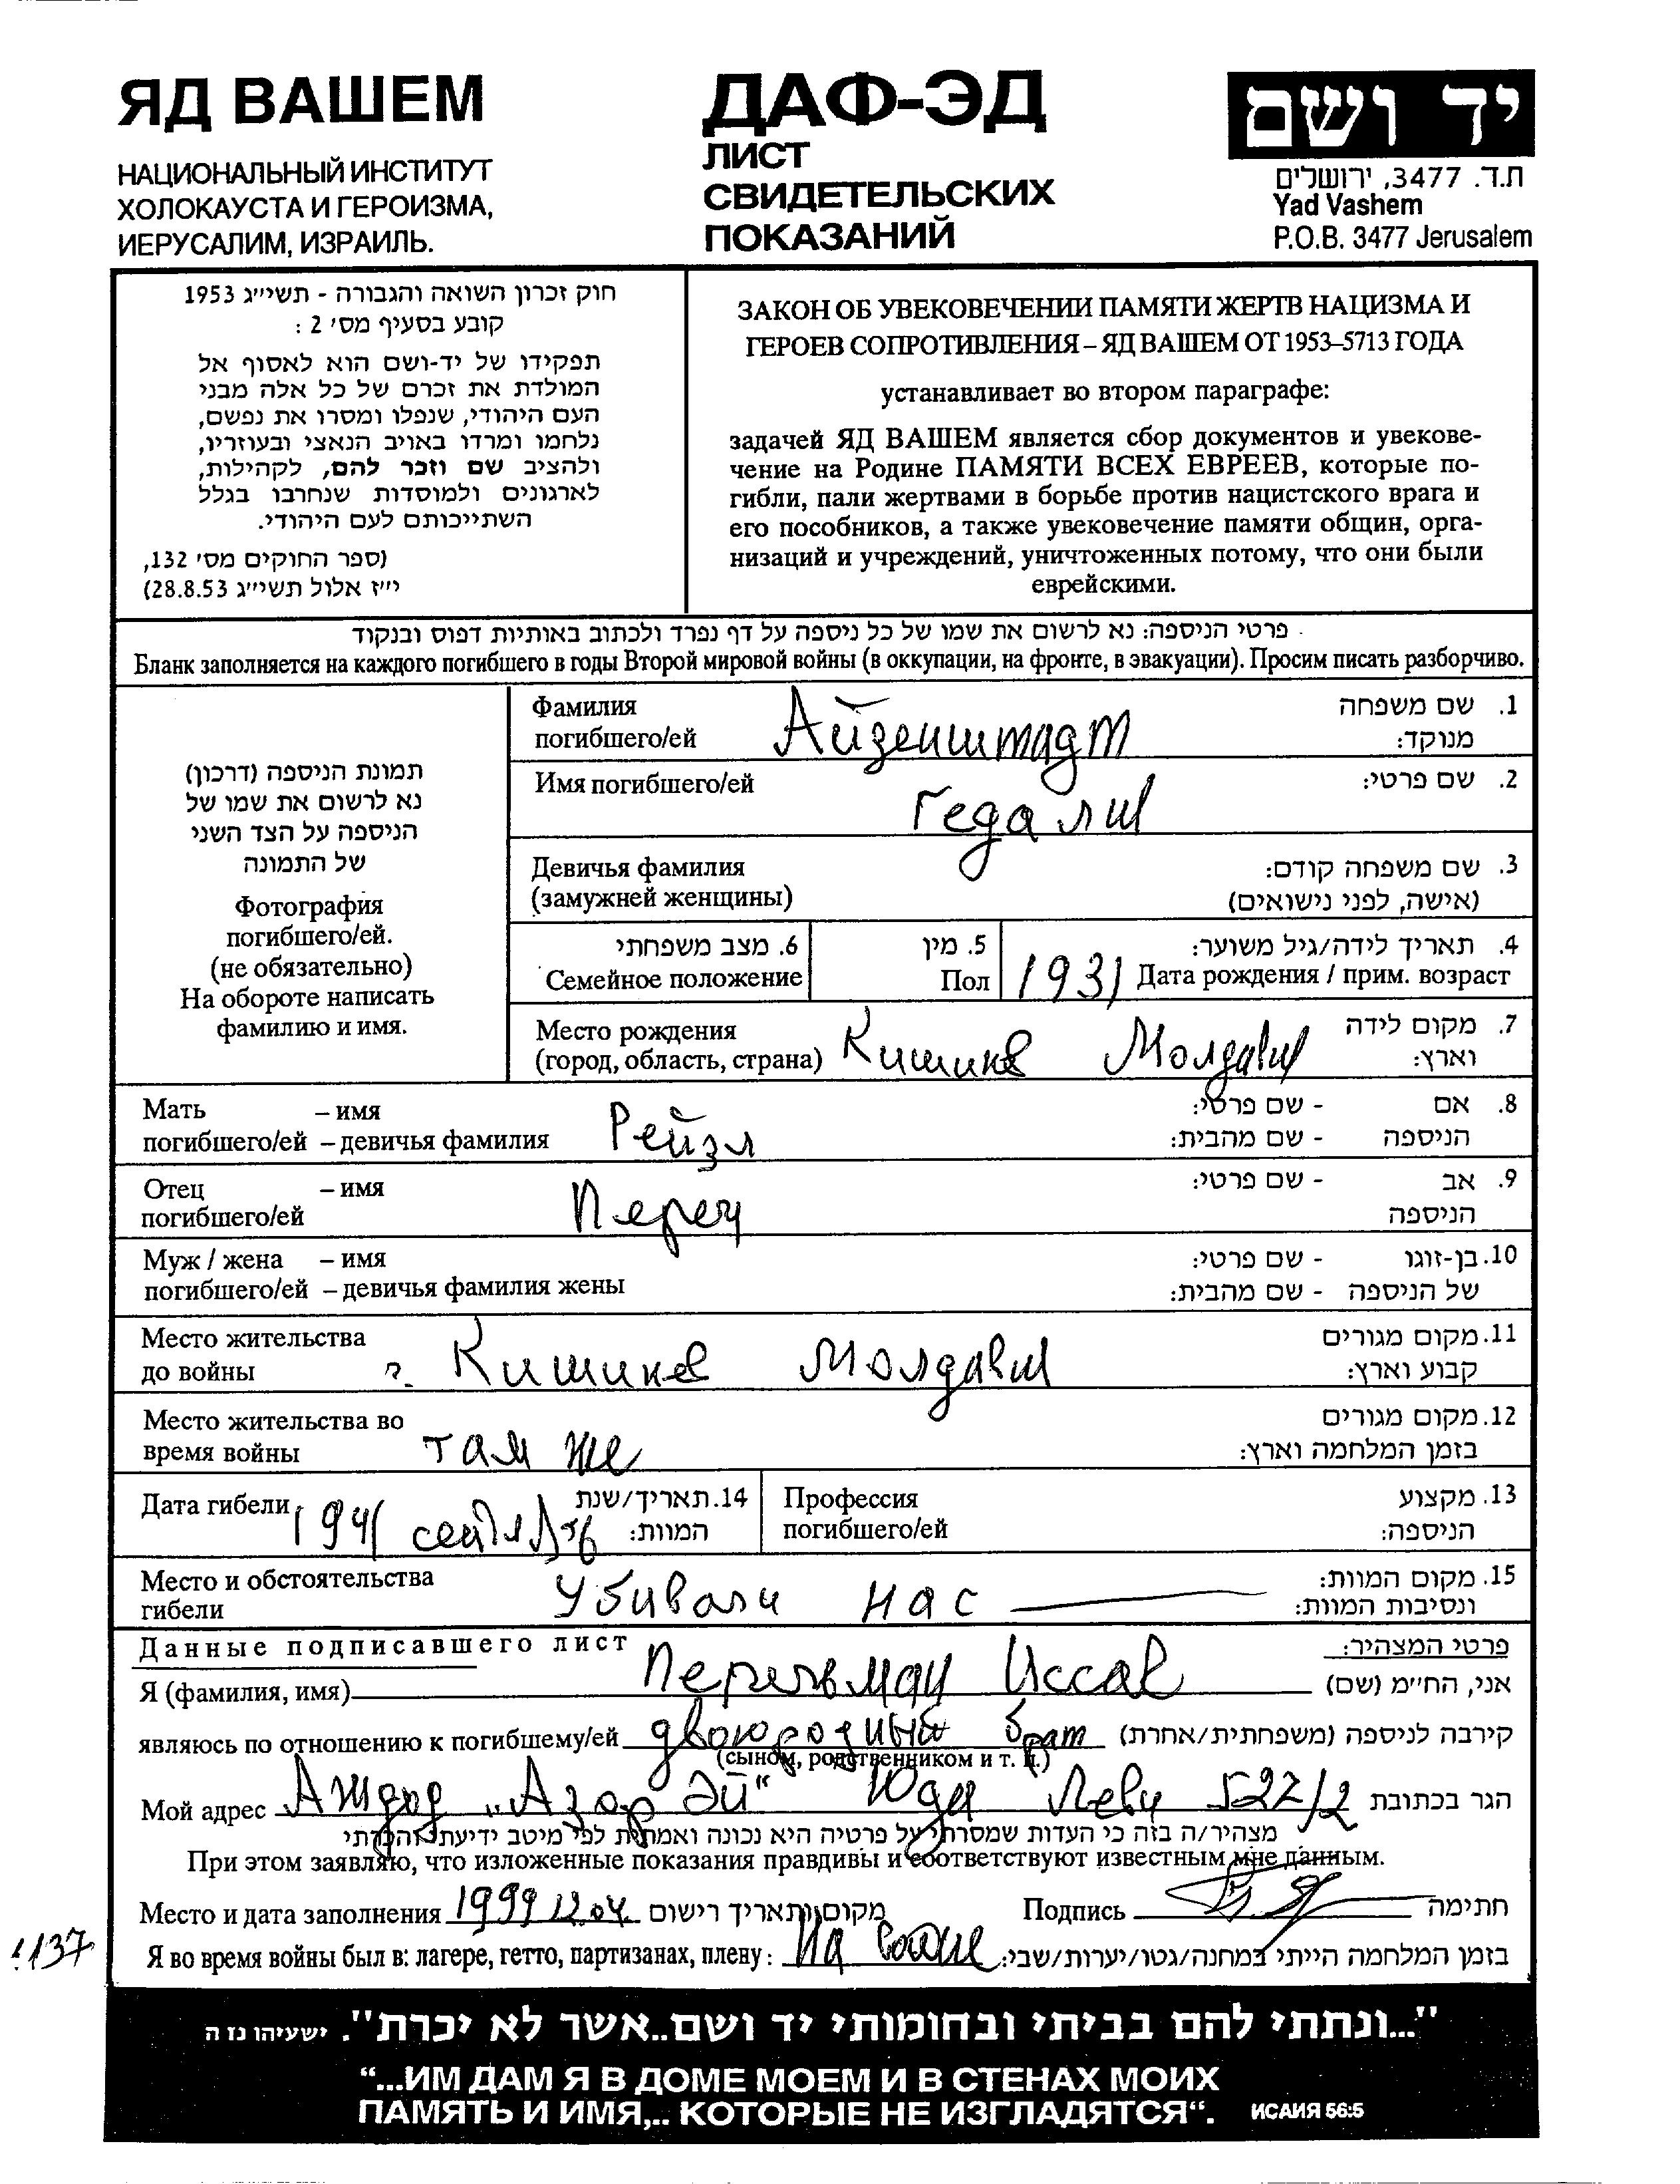 ЯД ВАШЕМ
НАЦИОНАЛЬНЫЙ ИНСТИТУТ
ХОЛОКАУСТА И ГЕРОИЗМА,
ИЕРУСАЛИМ, ИЗРАИЛЬ.
ДАФ-ЭД
ЛИСТ
СВИДЕТЕЛЬСКИХ
ПОКАЗАНИЙ
יד ושם
ת.ד. 3477, ירושלים
Yad Vashem
P.O.B. 3477 Jerusalem
חוק זכרון השואה והגבורה - תשי״ג 1953
קובע בסעיף מס׳ 2 :
תפקידו של יד-ושם הוא לאסוף אל
המולדת את זכרם של כל אלה מבני
העם היהודי, שנפלו ומסרו את נפשם,
נלחמו ומרדו באויב הנאצי ובעוזריו,
ולהציב שם וזכר להם, לקהילות,
לארגונים ולמוסדות שנחרבו בגלל
השתייכותם לעם היהודי.
(ספר החוקים מס׳ 132,
י״ז אלול תשי״ג 28.8.53)
ЗАКОН ОБ УВЕКОВЕЧЕНИИ ПАМЯТИ ЖЕРТВ НАЦИЗМА И
ГЕРОЕВ СОПРОТИВЛЕНИЯ – ЯД ВАШЕМ ОТ 1953–5713 ГОДА
устанавливает во втором параграфе:
задачей ЯД ВАШЕМ является сбор документов и увекове-
чение на Родине ПАМЯТИ ВСЕХ ЕВРЕЕВ, которые по-
гибли, пали жертвами в борьбе против нацистского врага и
его пособников, а также увековечение памяти общин, орга-
низаций и учреждений, уничтоженных потому, что они были
еврейскими.
פרטי הניספה: נא לרשום את שמו של כל ניספה על דף נפרד ולכתוב באותיות דפוס ובנקוד
Бланк заполняется на каждого погибшего в годы Второй мировой войны (в оккупации, на фронте, в эвакуации). Просим писать разборчиво.
תמונת הניספה (דרכון)
נא לרשום את שמו של
הניספה על הצד השני
של התמונה
Фотография
погибшего/ей.
(не обязательно)
На обороте написать
фамилию и имя.
Фамилия 1. שם משפחה
погибшего/ей Айзенштадт מנוקד:
Имя погибшего/ей Гедалия 2. שם פרטי:
Девичья фамилия 3. שם משפחה קודם:
(замужней женщины) (אישה, לפני נישואים)
6. מצב משפחתי 5. מין 4. תאריך לידה/גיל משוער:
Семейное положение Пол 1931 Дата рождения / прим. возраст
Место рождения 7. מקום לידה
(город, область, страна) Кишинев Молдавия וארץ:
Мать – имя - שם פרטי: 8. אם
погибшего/ей – девичья фамилия Рейзл - שם מהבית: הניספה
Отец – имя - שם פרטי: 9. אב
погибшего/ей Перец הניספה
Муж / жена – имя - שם פרטי: 10. בן-זוגו
погибшего/ей – девичья фамилия жены - שם מהבית: של הניספה
Место жительства 11. מקום מגורים
до войны г. Кишинев Молдавия קבוע וארץ:
Место жительства во 12. מקום מגורים
время войны там же בזמן המלחמה וארץ:
Дата гибели 14. תאריך/שנת Профессия 13. מקצוע
1941 сентябрь המוות: погибшего/ей הניספה:
Место и обстоятельства 15. מקום המוות:
гибели Убивали нас ונסיבות המוות:
Данные подписавшего лист פרטי המצהיר:
Я (фамилия, имя) Перельман Иссак אני, הח״מ (שם)
являюсь по отношению к погибшему/ей двоюродный брат קירבה לניספה (משפחתית/אחרת)
(сыном, родственником и т. п.)
Мой адрес Аждод „Азор Эй“ Юда Леви 522/2 הגר בכתובת
מצהיר/ה בזה כי העדות שמסרתי על פרטיה היא נכונה ואמתית לפי מיטב ידיעתי והכרתי
При этом заявляю, что изложенные показания правдивы и соответствуют известным мне данным.
Место и дата заполнения 1999 12.04 מקום ותאריך רישום Подпись חתימה
Я во время войны был в: лагере, гетто, партизанах, плену: На войне בזמן המלחמה הייתי במחנה/גטו/יערות/שבי:
137
"...ונתתי להם בביתי ובחומותי יד ושם..אשר לא יכרת". ישעיהו נז ה
“...ИМ ДАМ Я В ДОМЕ МОЕМ И В СТЕНАХ МОИХ
ПАМЯТЬ И ИМЯ,.. КОТОРЫЕ НЕ ИЗГЛАДЯТСЯ“. ИСАИЯ 56:5